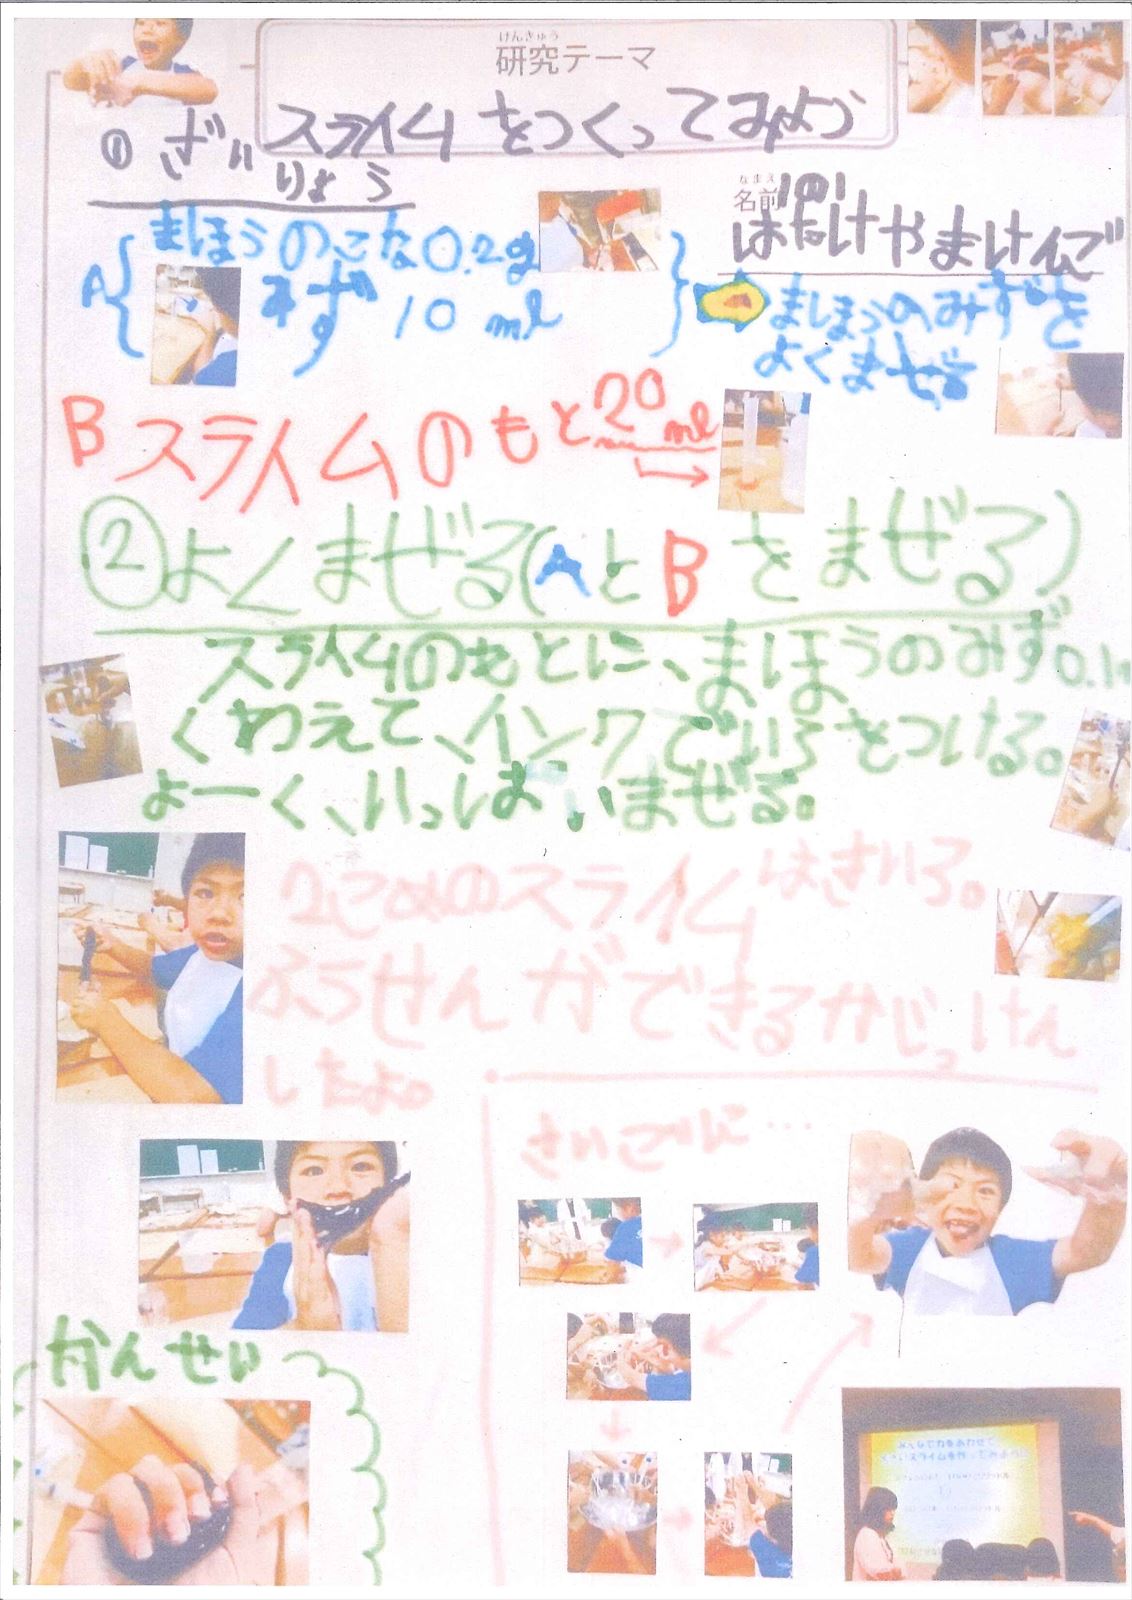 けんきゅう
研究テーマ
スライムをつくってみよう
① ざい
りょう
なまえ
名前
はたけやまけんご
A
まほうのこな0.2g
みず 10 ml
まほうのみずを
よくまぜる
B スライムのもと20ml
②よくまぜる(AとBをまぜる)
スライムのもとに、まほうのみず0.1
くわえて、インクでいろをつける。
よーく、いっぱいまぜる。
2こめのスライムはきいろ。
ふうせんができるかじっけん
したよ。
さいごに…
かんせい
みんなで力をあわせて